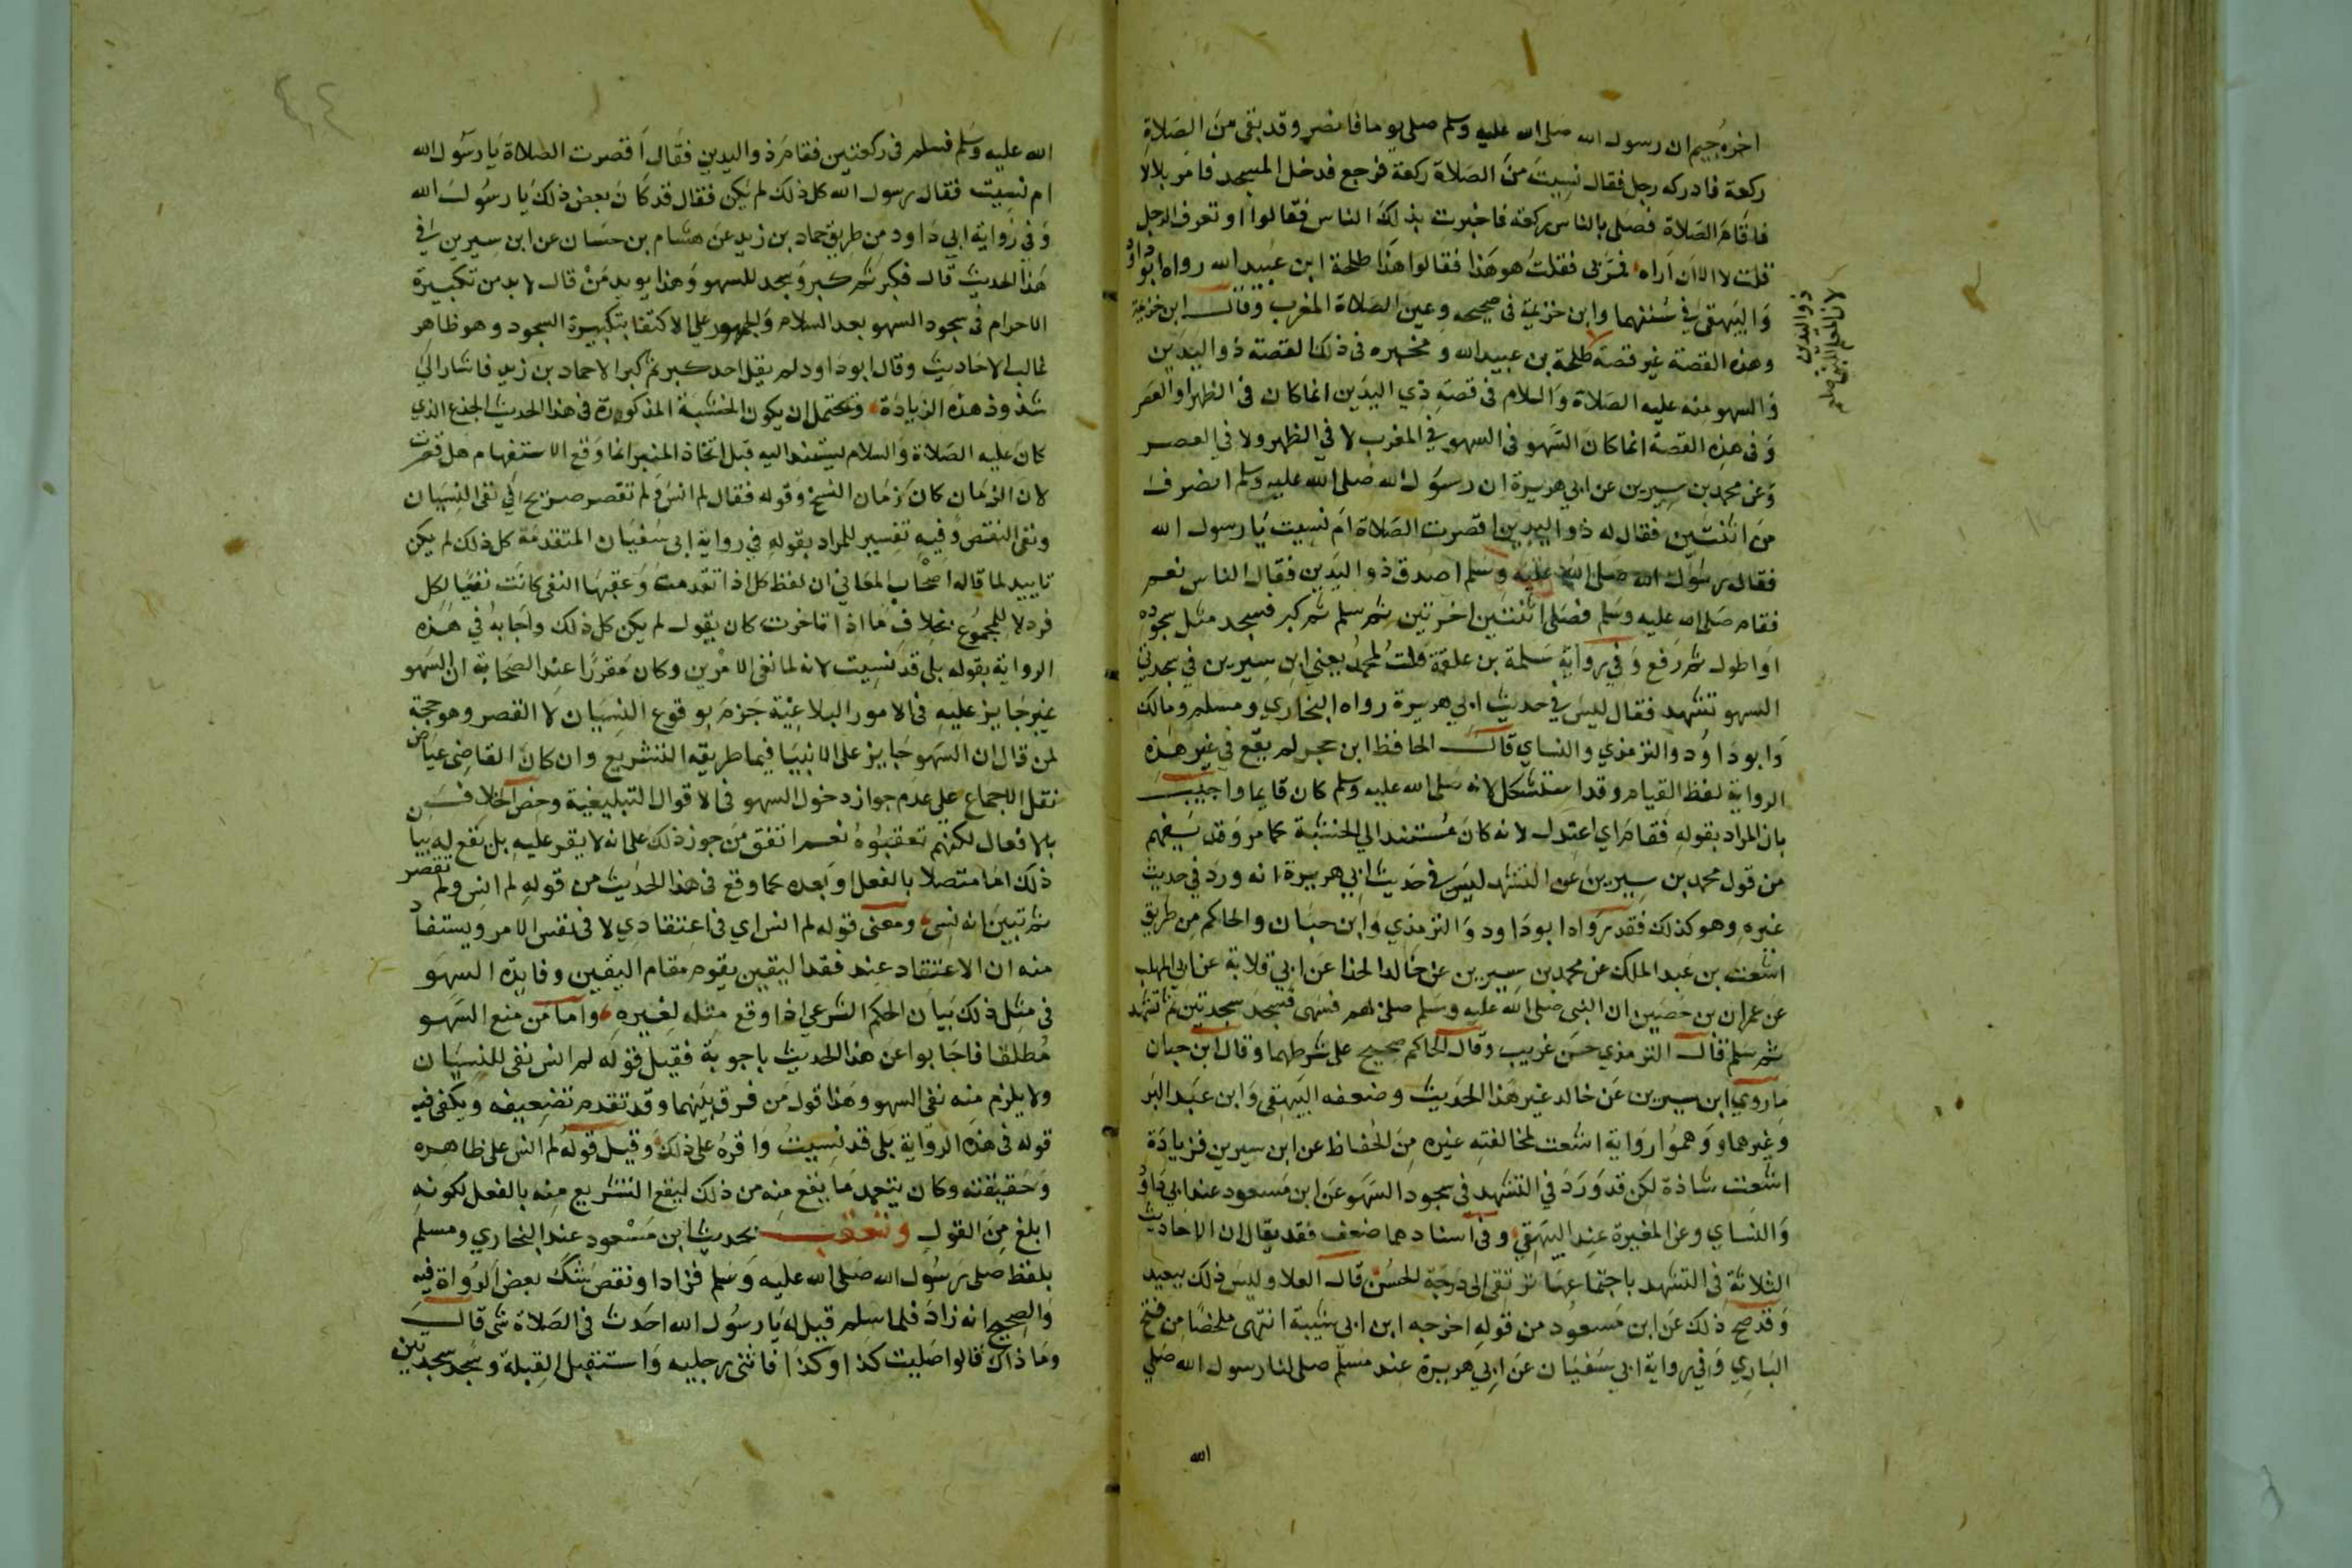 اخره جيم ان رسول الله صلى الله عليه وسلم صلى يوما فانصرف وقد بقى من الصلاة
ركعة فادركه رجل فقال نسيت من الصلاة ركعة فرجع فدخل المسجد فامر بلالا
فاقام الصلاة فصلى بالناس ركعة فاخبرت بذلك الناس فقالوا او تعرف الرجل
قلت لا الا ان اراه فمر بى فقلت هو هذا فقالوا هذا طلحة ابن عبيد الله رواه ابو داود
والبيهقى في سننهما وابن خزيمة في صحيحه وعين الصلاة المغرب وقال ابن خزيمة
وهذه القصة غير قصة طلحة بن عبيد الله ومخبره فى ذلك القصة ذو اليدين
والسهو منه عليه الصلاة والسلام فى قصة ذي اليدين انما كان فى الظهر او العصر
وفى هذه القصة انما كان السهو فى السهو في المغرب لا في الظهر ولا في العصر
وعن محمد بن سيرين عن ابي هريرة ان رسول الله صلى الله عليه وسلم انصرف
من اثنتين فقال له ذو اليدين اقصرت الصلاة ام نسيت يا رسول الله
فقال رسول الله صلى الله عليه وسلم اصدق ذو اليدين فقال الناس نعم
فقام صلى الله عليه وسلم فصلى اثنتين اخرتين ثم سلم ثم كبر فسجد مثل سجوده
او اطول ثم رفع وفي رواية سلمة بن علقمة قلت لمحمد يعني ابن سيرين في سجدتي
السهو تشهد فقال ليس في حديث ابي هريرة رواه البخاري ومسلم ومالك
وابو داود والترمذي والنساي قال الحافظ ابن حجر لم يقع في غير هذه
الرواية لفظ القيام وقد استشكل لانه صلى الله عليه وسلم كان قايما واجيب
بان المراد بقوله فقام اي اعتدل لانه كان مستندا الي الخشبة كما مر وقد يفهم
من قول محمد بن سيرين عن التشهد ليس في حديث ابي هريرة انه ورد في حديث
غيره وهو كذلك فقد رواه ابو داود والترمذي وابن حبان والحاكم من طريق
اشعث بن عبد الملك عن محمد بن سيرين عن خالد الحذا عن ابي قلابة عن ابي المهلب
عن عمران بن حصين ان النبى صلى الله عليه وسلم صلى بهم فسهى فسجد سجدتين ثم تشهد
ثم سلم قال الترمذي حسن غريب وقال الحاكم صحيح على شرطهما وقال ابن حبان
ما روي ابن سيرين عن خالد غير هذا الحديث وضعفه البيهقى وابن عبد البر
وغيرهما ووهموا رواية اشعث لمخالفته غيره من الحفاظ عن ابن سيرين فزيادة
اشعث شاذة لكن قد ورد في التشهد فى سجود السهو عن ابن مسعود عند ابي داود
والنساي وعن المغيرة عند البيهقي وفى اسنادهما ضعف فقد يقال ان الاحاديث
الثلاثة في التشهد باجتماعها ترتقى الى درجة الحسن قال العلا وليس ذلك ببعيد
وقد صح ذلك عن ابن مسعود من قوله اخرجه ابن ابى شيبة انتهى ملخصا من فتح
الباري وفي رواية ابي سفيان عن ابي هريرة عند مسلم صلى لنا رسول الله صلي
الله
ذو اليدين
الله عليه وسلم فسلم فى ركعتين فقام ذو اليدين فقال اقصرت الصلاة يا رسول الله
ام نسيت فقال رسول الله كل ذلك لم يكن فقال قد كان بعض ذلك يا رسول الله
وفي رواية ابي داود من طريق حماد بن زيد عن هشام بن حسان عن ابن سيرين في
هذا الحديث قال فكبر ثم كبر وسجد للسهو وهذا يويد من قال لا بد من تكبيرة
الاحرام في سجود السهو بعد السلام والجمهور على الاكتفا بتكبيرة السجود وهو ظاهر
غالب الاحاديث وقال ابو داود لم يقل احد كبر ثم كبر الا حماد بن زيد فاشار الي
شذوذ هذه الزيادة ويحتمل ان يكون الخشبة المذكورة فى هذا الحديث الجذع الذي
كان عليه الصلاة والسلام يستند اليه قبل اتخاذ المنبر انما وقع الاستفهام هل قصرت
لان الزمان كان زمان النسخ وقوله فقال لم انس ولم تقصر صريح في نفى النسيان
ونفى النقص وفيه تفسير للمراد بقوله في رواية ابى سفيان المتقدمة كل ذلك لم يكن
تاييد لما قاله اصحاب المعاني ان لفظ كل اذا تقدمت وعقبها النفى كانت نفيا لكل
فرد لا للمجموع بخلاف ما اذا تاخرت كان يقول لم يكن كل ذلك واجابه في هذه
الرواية بقوله بلى قد نسيت لانه لما نفى الامرين وكان مقررا عند الصحابة ان السهو
غير جايز عليه فى الامور البلاغية جزم بوقوع النسيان لا القصر وهو حجة
لمن قال ان السهو جايز على الانبيا فيما طريقه التشريع وان كان القاضى عياض
نقل الاجماع على عدم جواز دخول السهو فى الاقوال التبليغية وخص الخلاف
بالافعال لكنهم تعقبوه نعم اتفق من جوز ذلك على انه لا يقر عليه بل يقع له بيان
ذلك اما متصلا بالفعل او بعده كما وقع فى هذا الحديث من قوله لم انس ولم تقصر
ثم تبين انه نسى ومعنى قوله لم انس اي فى اعتقادي لا فى نفس الامر ويستفاد
منه ان الاعتقاد عند فقد اليقين يقوم مقام اليقين وفايدة السهو
فى مثل ذلك بيان الحكم الشرعي اذا وقع مثله لغيره واما من منع السهو
مطلقا فاجابوا عن هذا الحديث باجوبة فقيل قوله لم انس نفى للنسيان
ولا يلزم منه نفى السهو وهذا قول من فرق بينهما وقد تقدم تضعيفه ويكفى فيه
قوله فى هذه الرواية بلى قد نسيت واقره على ذلك وقيل قوله لم انس على ظاهره
وحقيقته وكان يتعمد ما يقع منه من ذلك ليقع التشريع منه بالفعل لكونه
ابلغ من القول وتعقب بحديث ابن مسعود عند البخاري ومسلم
بلفظ صلى رسول الله صلى الله عليه وسلم فزاد او نقص شك بعض الرواة فيه
والصحيح انه زاد فلما سلم قيل له يا رسول الله احدث فى الصلاة شى قال
وما ذاك قالوا صليت كذا وكذا فاثنى رجليه واستقبل القبلة وسجد سجدتين